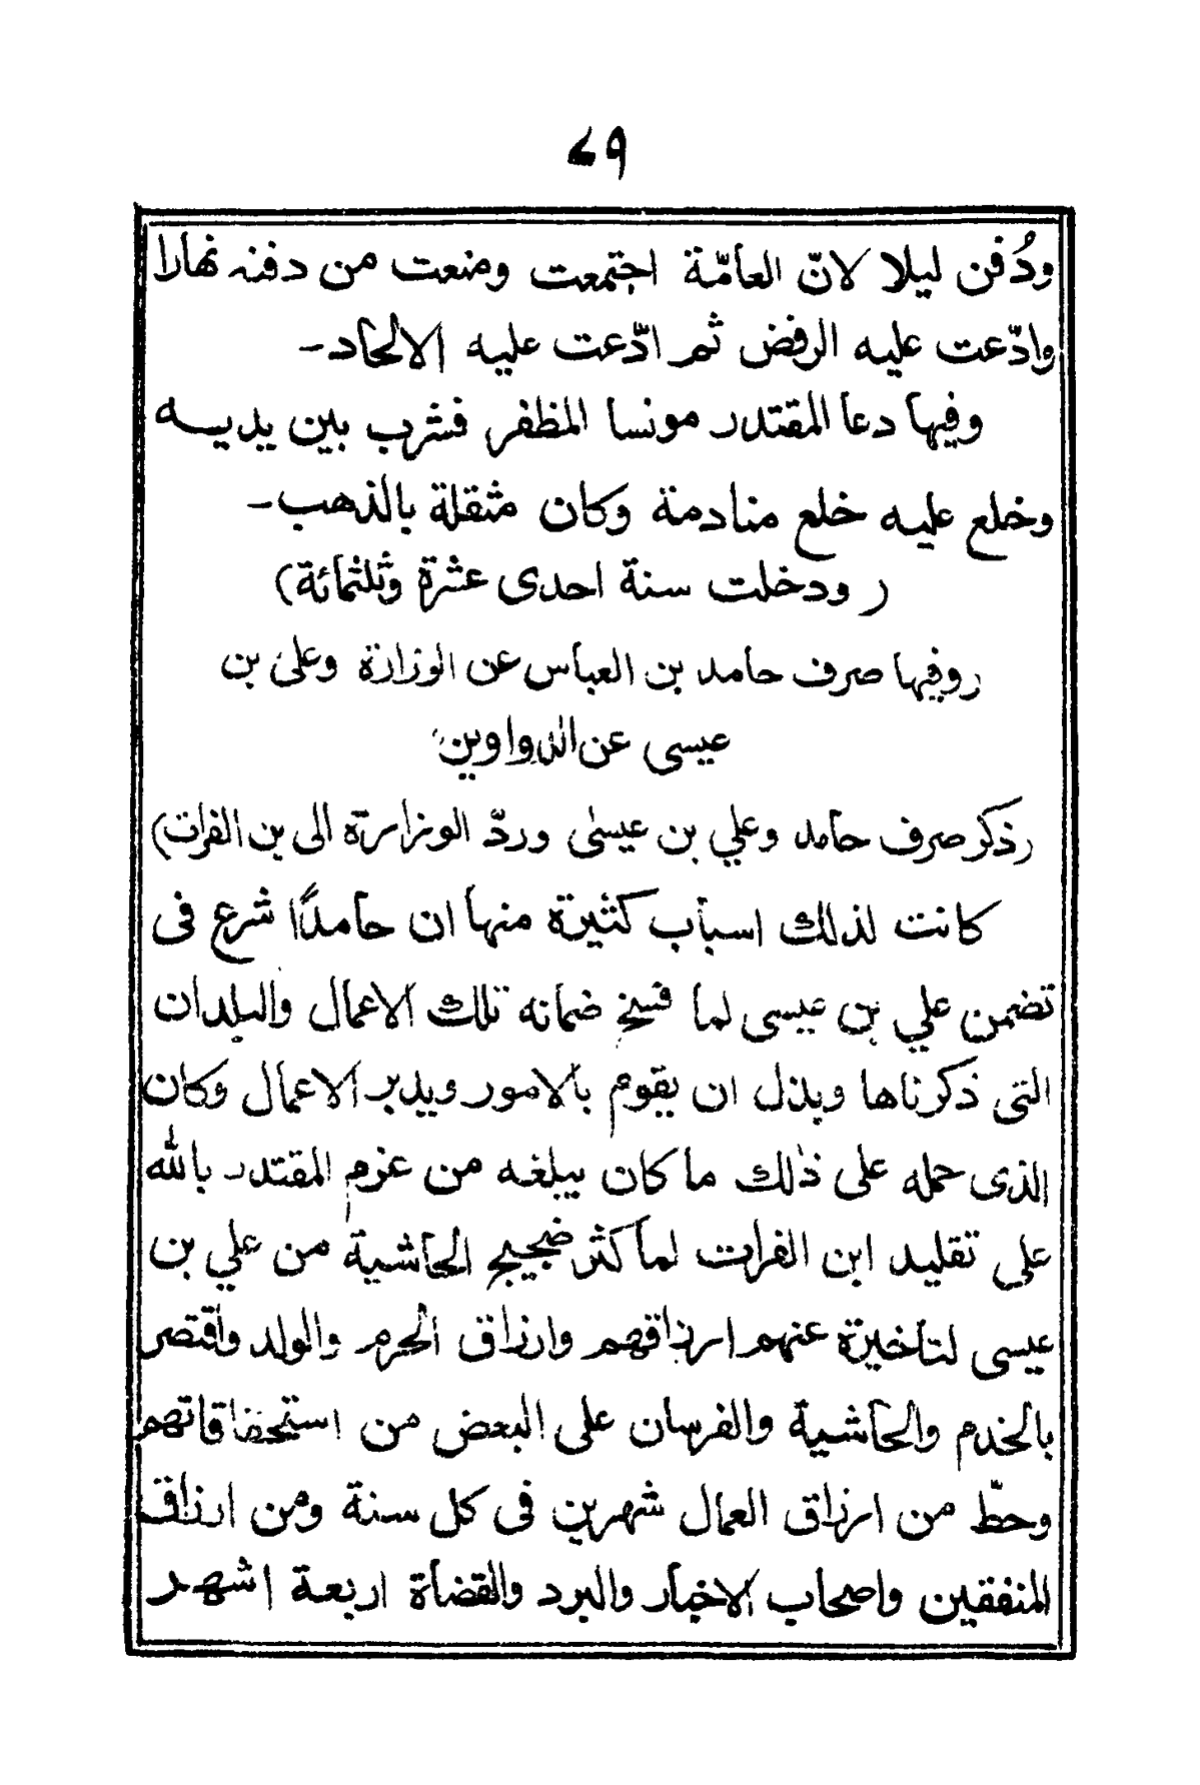 ٤٩
ودُفن ليلا لانّ العامّة اجتمعت ومنعت من دفنه نهارا
وادّعت عليه الرفض ثم ادّعت عليه الالحاد-
وفيها دعا المقتدر مونسا المظفر فشرب بين يديه
وخلع عليه خلع منادمة وكان مثقلة بالذهب-
( ودخلت سنة احدى عشرة وثلثمائة)
(وفيها صرف حامد بن العباس عن الوزارة وعلى بن
عيسى عن الدواوين
(ذكر صرف حامد وعلي بن عيسى وردّ الوزارة الى بن الفرات)
كانت لذلك اسباب كثيرة منها ان حامدًا شرع فى
تضمن علي بن عيسى لما فسخ ضمانه تلك الاعمال والبلدان
التى ذكرناها وبذل ان يقوم بالامور ويدبر الاعمال وكان
الذى حمله على ذلك ما كان يبلغه من عزم المقتدر بالله
على تقليد ابن الفرات لما كثر ضجيج الحاشية من علي بن
عيسى لتأخيرة عنهم ارزاقهم وارزاق الحرم والولد واقتصر
بالخدم والحاشية والفرسان على البعض من استحقاقاتهم
وحطّ من ارزاق العمال شهرين فى كل سنة ومن ارزاق
المنفقين واصحاب الاخبار والبرد والقضاة اربعة اشهر